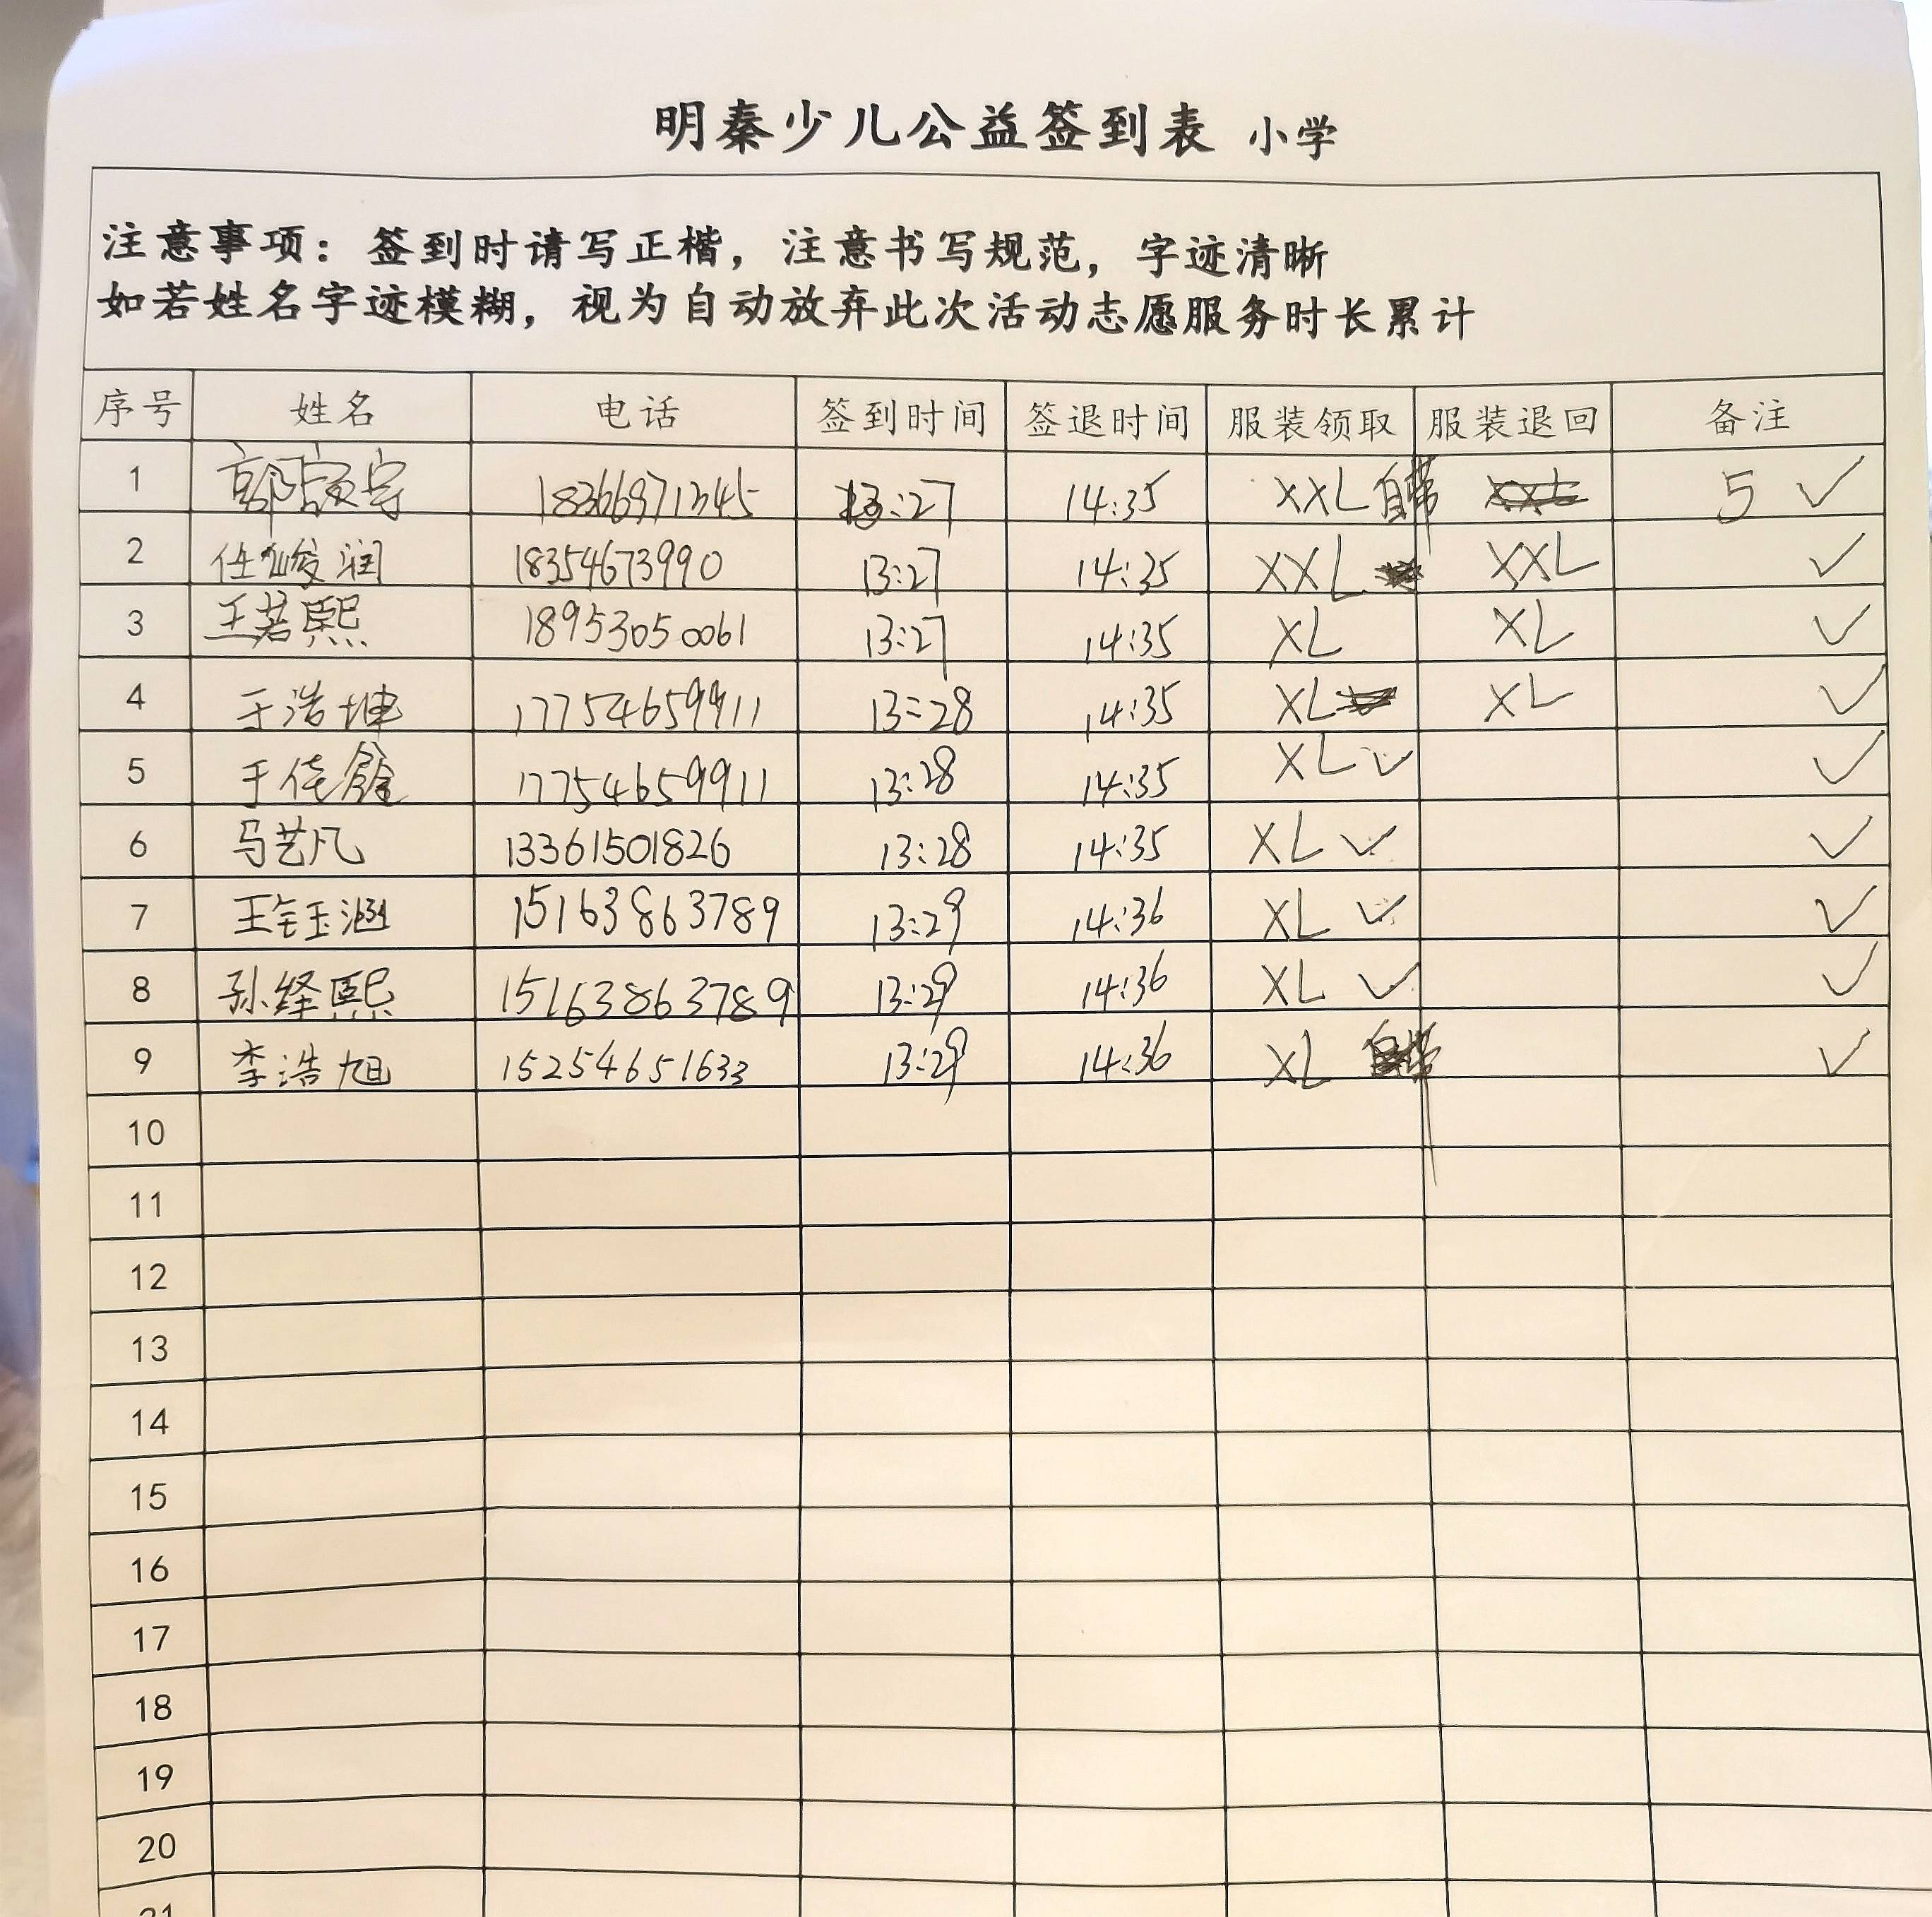 明秦少儿公益签到表 小学
注意事项：签到时请写正楷，注意书写规范，字迹清晰
如若姓名字迹模糊，视为自动放弃此次活动志愿服务时长累计
序号 姓名 电话 签到时间 签退时间 服装领取 服装退回 备注
1 郭 宇 18366971345 13:27 14:35 XXL 自带 5 ✓
2 任峻润 18354673990 13:27 14:35 XXL XXL ✓
3 王若熙 18953050061 13:27 14:35 XL XL ✓
4 于浩坤 17754659911 13:28 14:35 XL XL ✓
5 于佳鑫 17754659911 13:28 14:35 XL ✓ ✓
6 马艺凡 13361501826 13:28 14:35 XL ✓ ✓
7 王钰涵 15163863789 13:29 14:36 XL ✓ ✓
8 孙绎熙 15163863789 13:29 14:36 XL ✓ ✓
9 李浩旭 15254651633 13:29 14:36 XL ✓
10
11
12
13
14
15
16
17
18
19
20
21